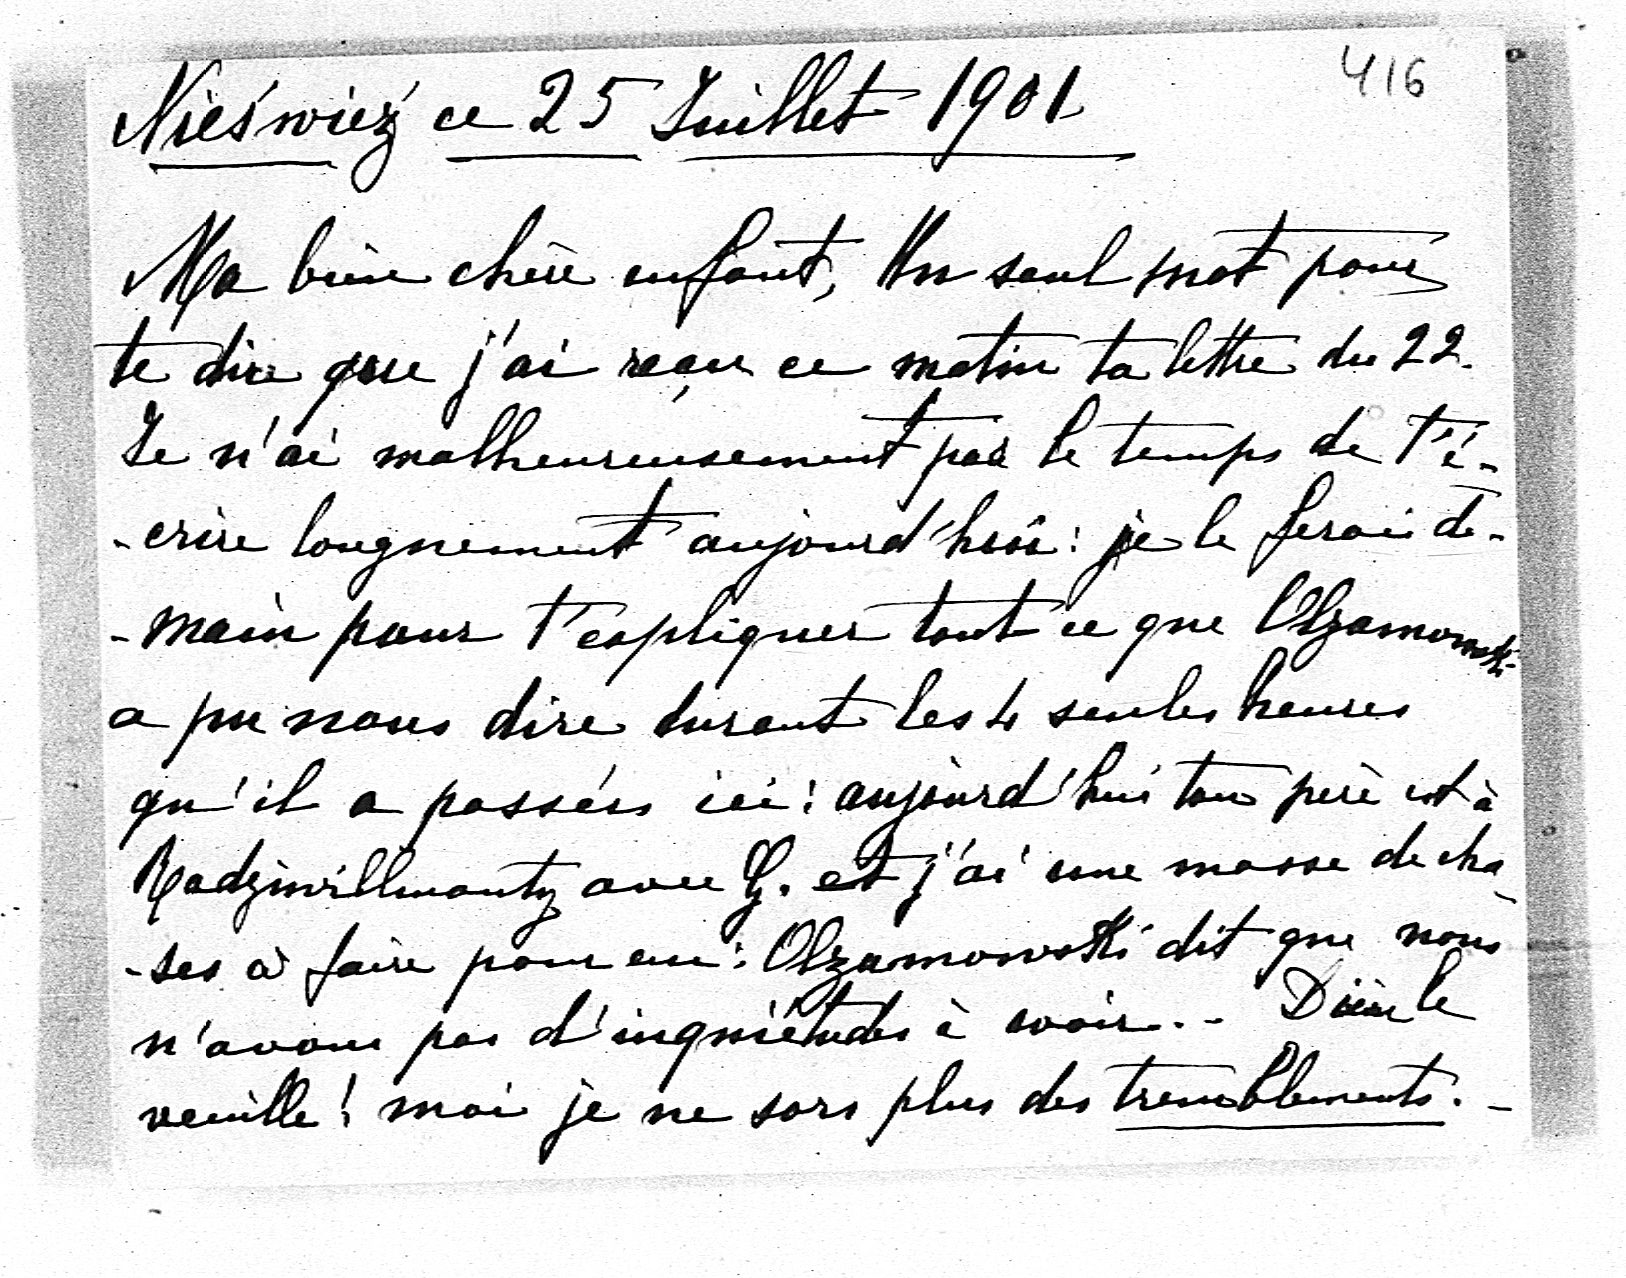 416
Nieśwież ce 25 Juillet 1901
Ma bien chère enfant, Un seul mot pour
te dire que j'ai reçu ce matin ta lettre du 22.
Je n'ai malheureusement pas le temps de t'é-
-crire longuement aujourd'hui : je le ferai de-
-main pour t'expliquer tout ce que Olzamowski
a pu nous dire durant les 4 seules heures
qu'il a passées ici : aujourd'hui ton père est à
Radziwillmonty avec G. et j'ai une masse de cho-
-ses à faire pour eux : Olzamowski dit que nous
n'avons pas d'inquiétudes à avoir. - Dieu le
veuille ! moi je ne sors plus des tremblements. -